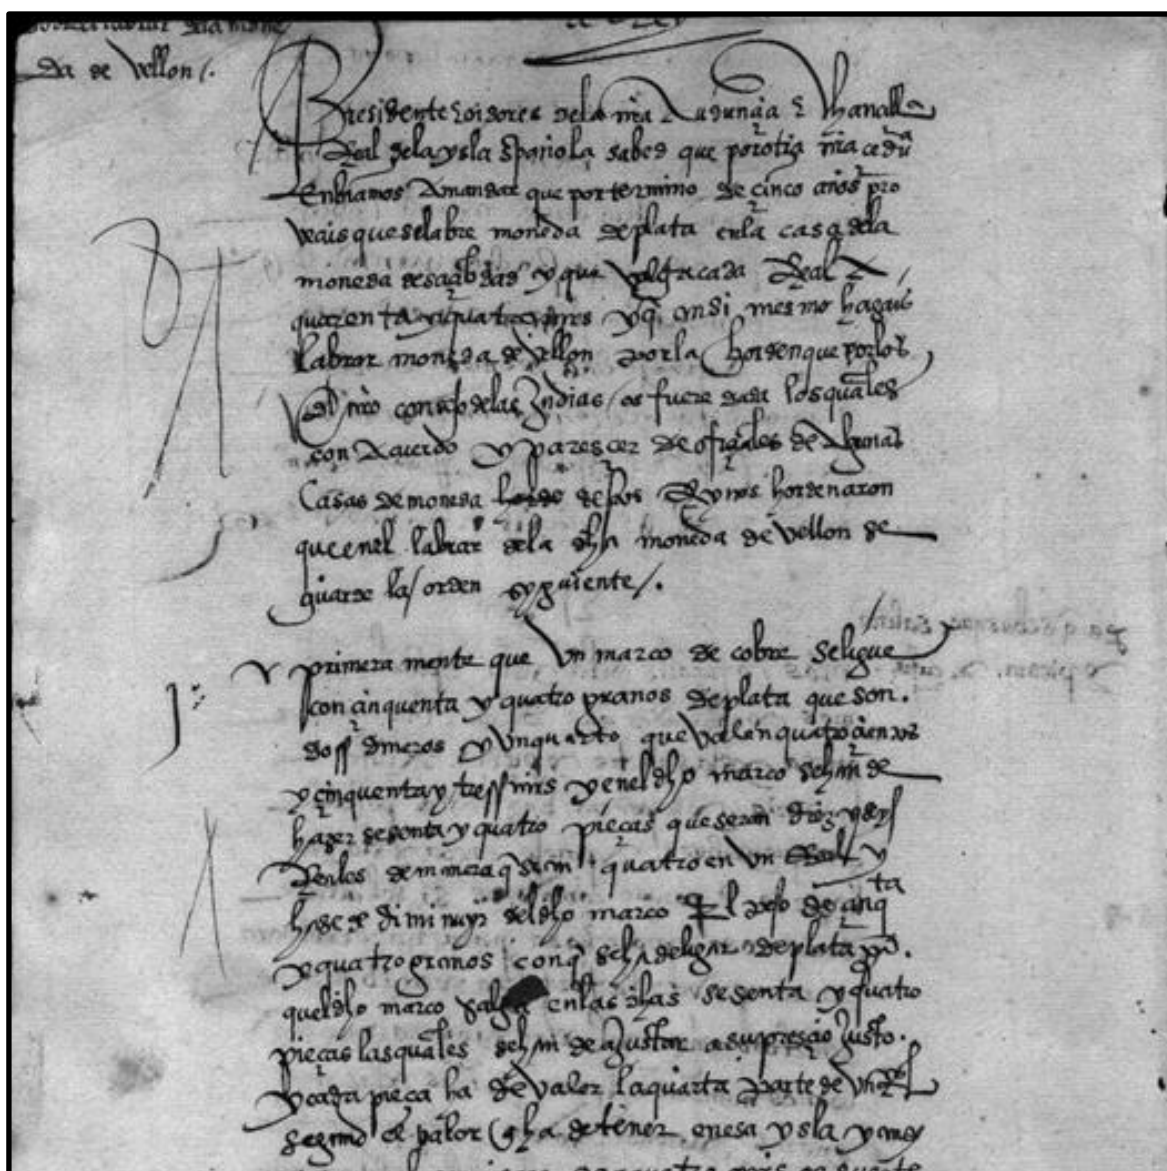 da de vellon /.
el Rey
Presidente e oidores de la nra Audiençia e Chançill
Real de la ysla española sabed que por otra nra cedu
Enbiamos A mandar que por termino de cinco años pro
veais que se labre moneda de plata en la casa de la
moneda desa çibdad y que valga cada Real A
quarenta y quatro mrs y q ansi mesmo hagais
labrar moneda de vellon por la horden que por los
del nro consejo de las Indias os fuere dada los quales
con Acuerdo y paresçer de ofiçiales de Algunas
Casas de moneda destos Reynos hordenaron
que en el labrar de la dha moneda de vellon se
guarde la orden syguiente /.
y primera mente que Un marco de cobre se ligue
con çinquenta y quatro granos de plata que son.
doss dineros y Un quarto que valen quatroçientos
y çinquenta y tress mrs y en el dho marco se han de
hazer sesenta y quatro pieças que seran diez y seys
Reales de manera q sean quatro en Un Real y
ha se de diminuyr del dho marco El peso de çinq ta
y quatro granos con q se ha de ligar de plata pa.
que el dho marco valga en las dhas sesenta y quatro
pieças las quales se han de ajustar a su preçio Justo.
y cada pieça ha de valer la quarta parte de Un Rl
segund el valor q ha de tener en esa ysla y